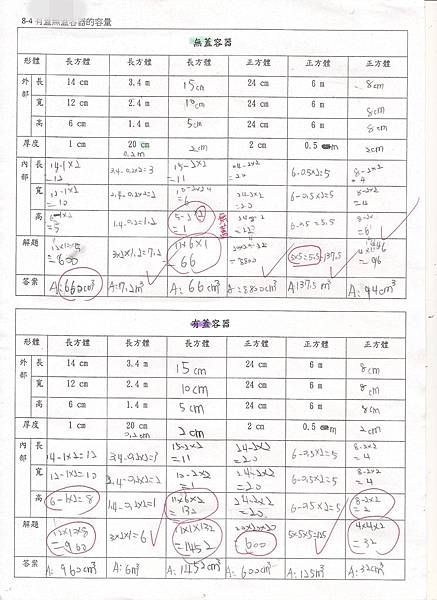 8-4 有蓋無蓋容器的容量
無蓋容器
形體 長方體 長方體 長方體 正方體 正方體 正方體
外部 長 14 cm 3.4 m 15 cm 24 cm 6 m 8 cm
寬 12 cm 2.4 m 10 cm 24 cm 6 m 8 cm
高 6 cm 1.4 m 5 cm 24 cm 6 m 8 cm
厚度 1 cm 20 cm 2 cm 2 cm 0.5 m 2 cm
0.2 m
內部 長 14-1×2 3.4-0.2×2=3 15-2×2 24-2×2 6-0.5×2=5 8-2×2
=12 =11 =20 =4
寬 12-1×2 2.4-0.2×2=2 6-0.5×2=5 8-2×2
=10 =6 =20 =4
高 1.4-0.2=1.2 8-2
=5 =1 =6
解題 3×2×1.2=7.2 11×6×1 5×5=5.5=137.5
=600 =66 =96
答案 A:660cm³ A:7.2m³ A:66cm³ A:8800cm³ A:137.5m³ A:94cm³
有蓋容器
形體 長方體 長方體 長方體 正方體 正方體 正方體
外部 長 14 cm 3.4 m 15 cm 24 cm 6 m 8 cm
寬 12 cm 2.4 m 10 cm 24 cm 6 m 8 cm
高 6 cm 1.4 m 5 cm 24 cm 6 m 8 cm
厚度 1 cm 20 cm 2 cm 2 cm 0.5 m 2 cm
0.2 m
內部 長 14-1×2=12 3.4-0.2×2=3 15-2×2 24-2×2 6-0.5×2=5 8-2×2
=11 =20 =4
寬 12-1×2=10 2.4-0.2×2=2 24-2×2 6-0.5×2=5 8-2×2
=1 =20 =4
高 6-1×2=8 1.4-0.2×2=1 11×6×2 24-2×2 6-0.5×2=5 8-2×2
=132 =20 =2
解題 12×10×8 3×2×1=6 11×1×132 20×20×20 5×5×5=125 4×4×2
=960 =1452 =600 =32
答案 A:960cm³ A:6m³ A:1452cm³ A:600cm³ A:125m³ A:32cm³